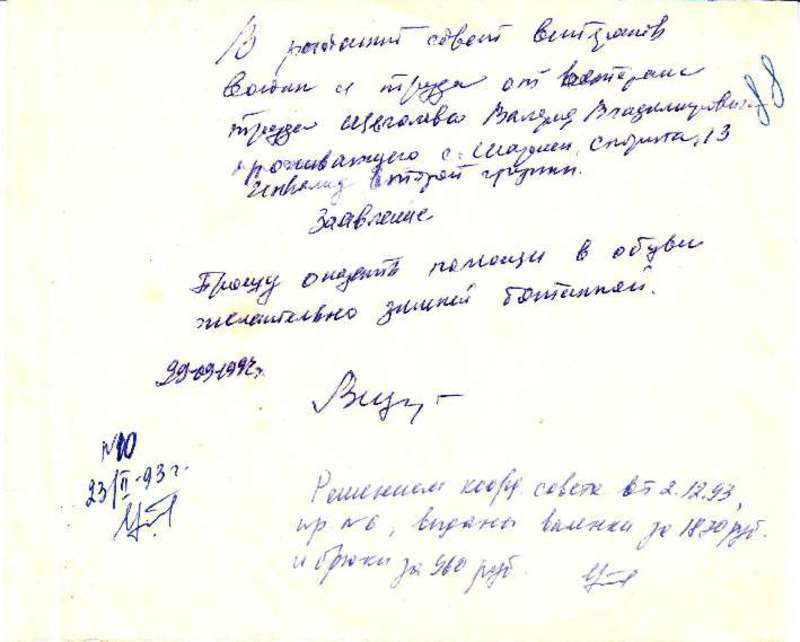 В районный совет ветеранов
войны и труда от ветерана
труда Щеголева Валерия Владимировича
проживающего с. Шаркан, Спорта, 13
инвалид второй группы.
88
Заявление
Прошу оказать помощи в обуви
желательно зимней ботинкой.
29-09-1992г.
№10
23/II-93 г.
Решением коорд. совета от 2.12.93,
пр №6, выданы валенки за 1870 руб.
и брюки за 960 руб.